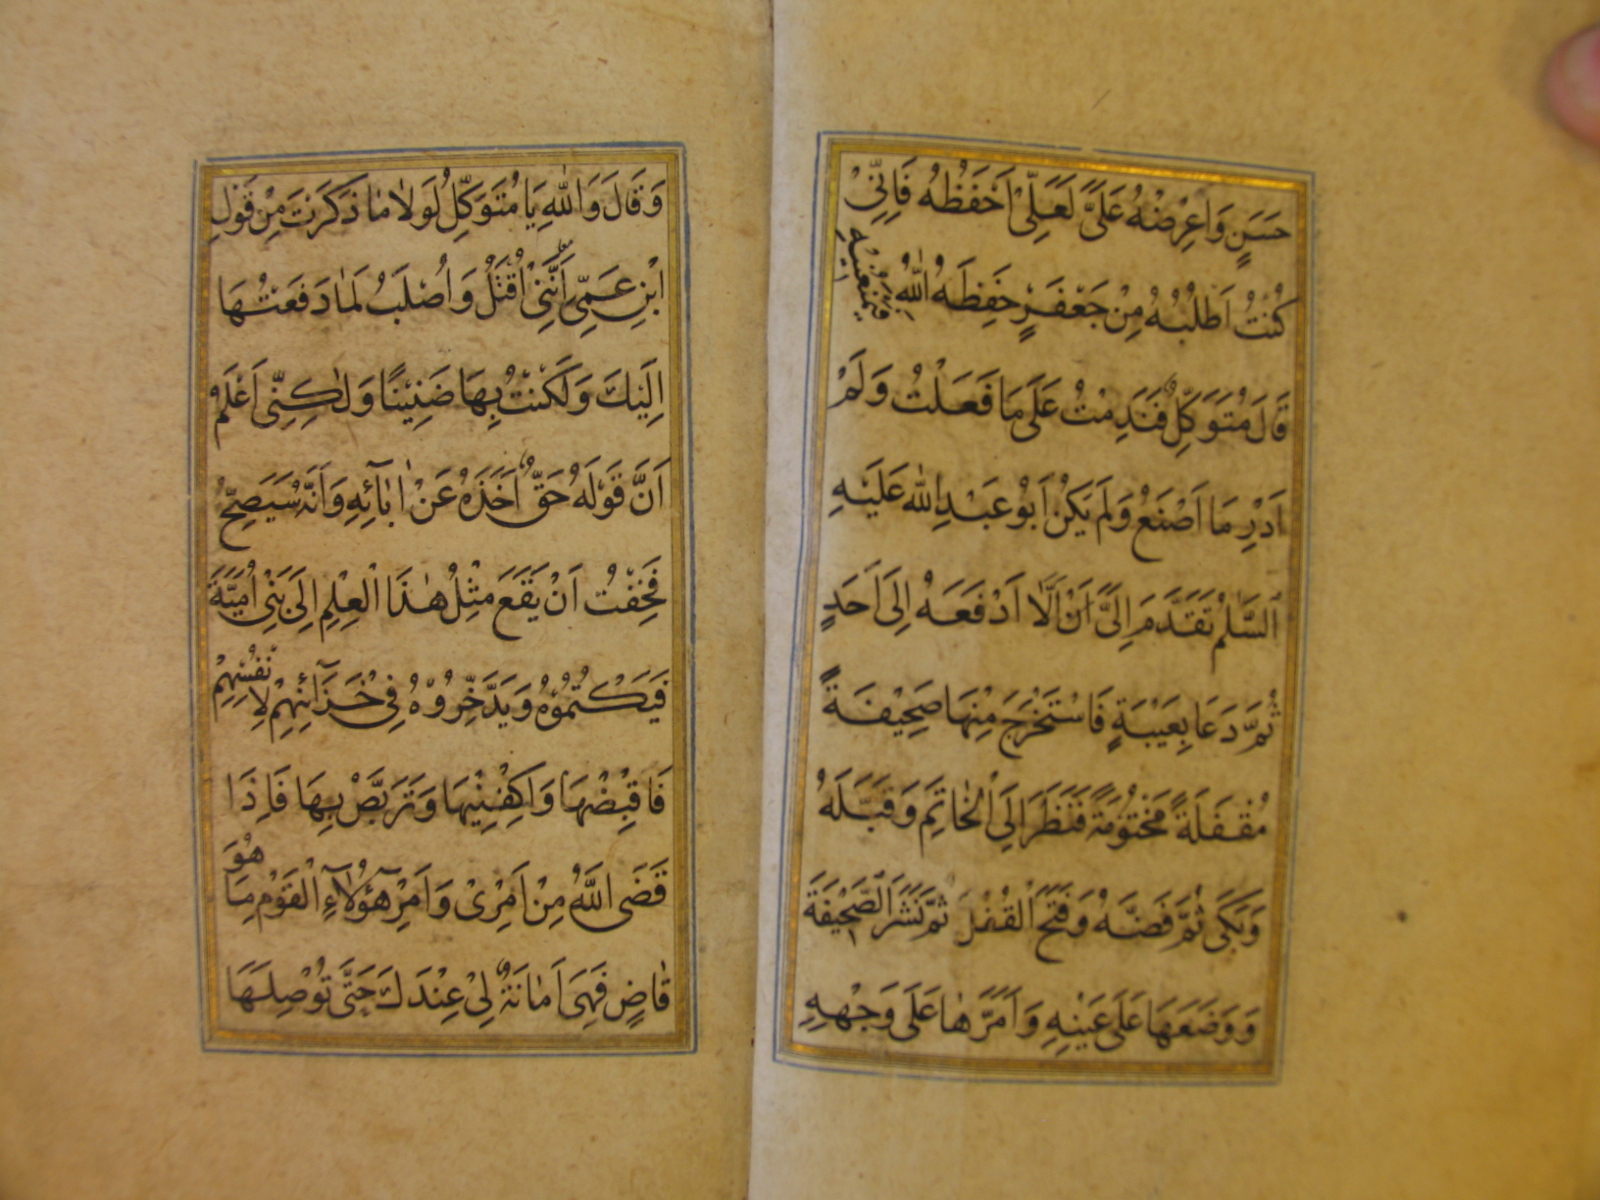 حَسَنٍ وَاعْرِضْهُ عَلَیَّ لَعَلِّیْ اَحْفَظُهُ فَاِنِّیْ
كُنْتُ اَطْلُبُهُ مِنْ جَعْفَرٍ حَفِظَهُ اللّٰهُ فَيَمْنَعُنِيهِ
قَالَ مُتَوَكِّلٌ فَنَدِمْتُ عَلَی مَا فَعَلْتُ وَلَمْ
اَدْرِ مَا اَصْنَعُ وَلَمْ يَكُنْ اَبُو عَبْدِ اللّٰه عَلَيْهِ
السَّلٰمُ تَقَدَّمَ اِلَیَّ اَنْ اَلَّا اَدْفَعَهُ اِلَی اَحَدٍ
ثُمَّ دَعَا بِعَيْبَةٍ فَاسْتَخْرَجَ مِنْهَا صَحِيْفَةً
مُقْفَلَةً مَخْتُوْمَةً فَنَظَرَ اِلَی الْخَاتِمِ وَقَبَّلَهُ
وَبَكَی ثُمَّ فَضَّهُ وَفَتَحَ الْقُفْلَ ثُمَّ نَشَرَ الصَّحِيْفَةَ
وَوَضَعَهَا عَلَی عَيْنِهِ وَاَمَرَّهَا عَلَی وَجْهِهِ
وَقَالَ وَاللّٰهِ يَا مُتَوَكِّلُ لَوْلَا مَا ذَكَرْتَ مِنْ قَوْلِ
ابْنِ عَمِّی اَنَّنِیْ اُقْتَلُ وَاُصْلَبُ لَمَا دَفَعْتُهَا
اِلَيْكَ وَلَكُنْتُ بِهَا ضَنِيْنًا وَلٰكِنِّی اَعْلَمُ
اَنَّ قَوْلَهُ حَقٌّ اَخَذَهُ عَنْ اٰبَآئِهِ وَاَنَّهُ سَيَصِحُّ
فَخِفْتُ اَنْ يَقَعَ مِثْلُ هٰذَا الْعِلْمِ اِلَی بَنِیْ اُمَيَّةَ
فَيَكْتُمُوْهُ وَيَدَّخِرُوْهُ فِیْ خَزَآئِنِهِمْ لِاَنْفُسِهِمْ
فَاقْبِضْهَا وَاكْفِنِيْهَا وَتَرَبَّصْ بِهَا فَاِذَا
قَضَی اللّٰهُ مِنْ اَمْرِیْ وَاَمْرِ هٰٓؤُلَآءِ الْقَوْمِ مَا هُوَ
قَاضٍ فَهِیَ اَمَانَةٌ لِیْ عِنْدَكَ حَتَّی تُوْصِلَهَا